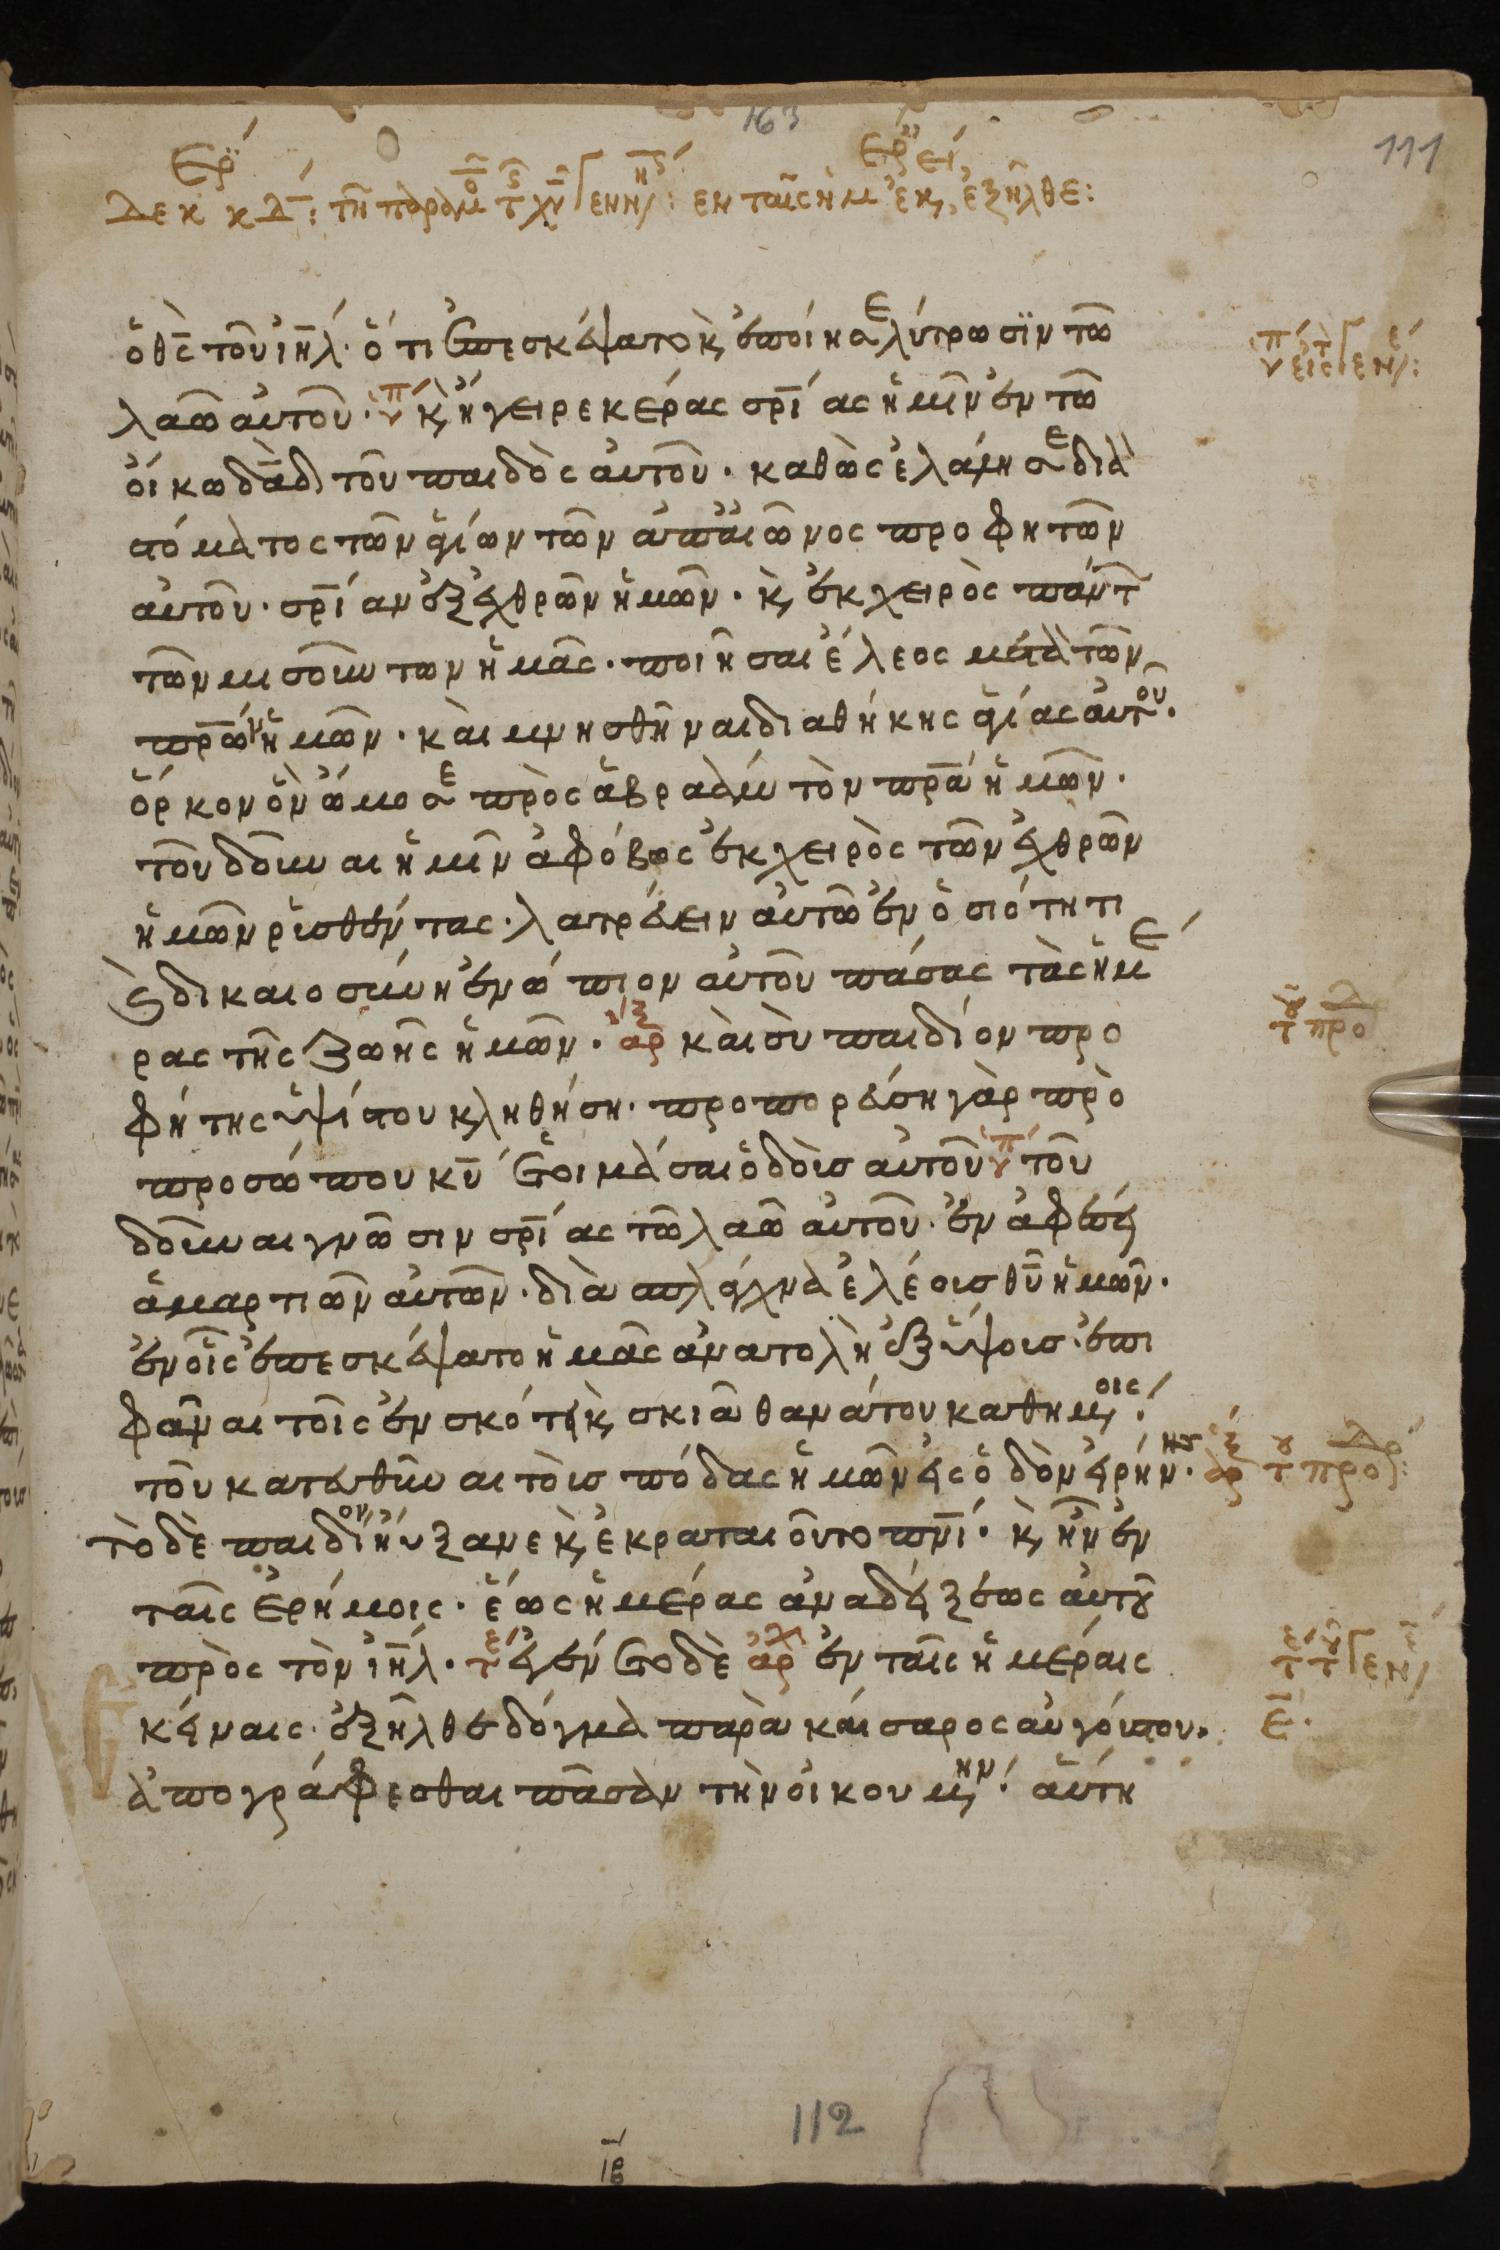 163
111
Δεκ κδ: τῆ παραμ τ χυ γενν: εν ταῖς ἡμ ἐκ, ἐξῆλθε:
ὁ θς τοῦ ιηλ· ὅτι ἐπεσκέψατο κ ἐποίησε λύτρωσϊν τῶ
λαῶ αὐτοῦ· κ ἤγειρε κέρας σρίας ἡμῖν ἐν τῶ
οἴκω δαδ τοῦ παιδὸς αὐτοῦ· καθὼς ἐλάλησε διὰ
στόματος τῶν ἁγίων τῶν ἀπ αἰῶνος προφητῶν
αὐτοῦ· σρίαν ἐξ ἐχθρῶν ἡμῶν· κ ἐκ χειρὸς πάντ
τῶν μισούντων ἡμᾶς· ποιῆσαι ἔλεος μετὰ τῶν
πρων ἡμῶν· καὶ μνησθῆναι διαθήκης ἁγίας αὐτοῦ·
ὅρκον ὃν ὤμοσε πρὸς ἀβραὰμ τὸν πρα ἡμῶν·
τοῦ δοῦναι ἡμῖν ἀφόβως ἐκ χειρὸς τῶν ἐχθρῶν
ἡμῶν ῥυσθέντας· λατρεύειν αὐτῶ ἐν ὁσιότητι
κ δικαιοσύνη ἐνώπιον αὐτοῦ πάσας τὰς ἡμέ
ρας τῆς ζωῆς ἡμῶν· αρ καὶ σὺ παιδίον προ
φήτης ὑψίστου κληθήση· προπορεύση γὰρ πρὸ
προσώπου κυ ἑτοιμάσαι ὁδοὺς αὐτοῦ τοῦ
δοῦναι γνῶσιν σρίας τῶ λαῶ αὐτοῦ· ἐν ἀφέσει
ἁμαρτιῶν αὐτῶν· διὰ σπλάγχνα ἐλέους θυ ἡμῶν·
ἐν οἷς ἐπεσκέψατο ἡμᾶς ἀνατολὴ ἐξ ὕψους· ἐπι
φᾶναι τοῖς ἐν σκότει κ σκιᾶ θανάτου καθημοις·
τοῦ κατευθῦναι τοὺς πόδας ἡμῶν εἰς ὁδὸν εἰρήν·
τὸ δὲ παιδίον ηὔξανε κ ἐκραταιοῦτο πνι· κ ἦν ἐν
ταῖς ἐρήμοις· ἕως ἡμέρας ἀναδείξεως αὐτοῦ
πρὸς τὸν ιηλ· τε ἐγένετο δὲ αρχ ἐν ταῖς ἡμέραις
ἐκείναις· ἐξῆλθε δόγμα παρὰ καίσαρος αὐγούστου·
ἀπογράφεσθαι πᾶσαν τὴν οἰκουμην· αὕτη
112
ιβ